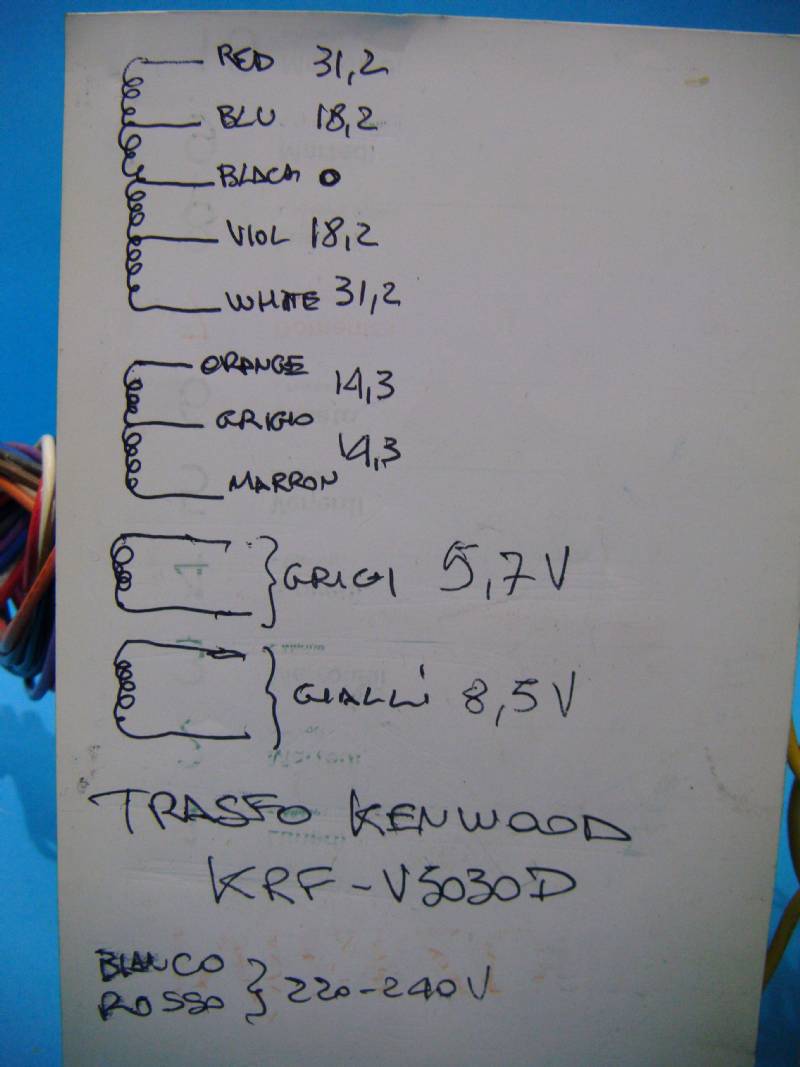 RED 31,2
BLU 18,2
BLACK 0
VIOL 18,2
WHITE 31,2
ORANGE
14,3
GRIGIO
14,3
MARRON
GRIGI 5,7V
GIALLI 8,5V
TRASFO KENWOOD
KRF-V5030D
BIANCO
ROSSO } 220-240V